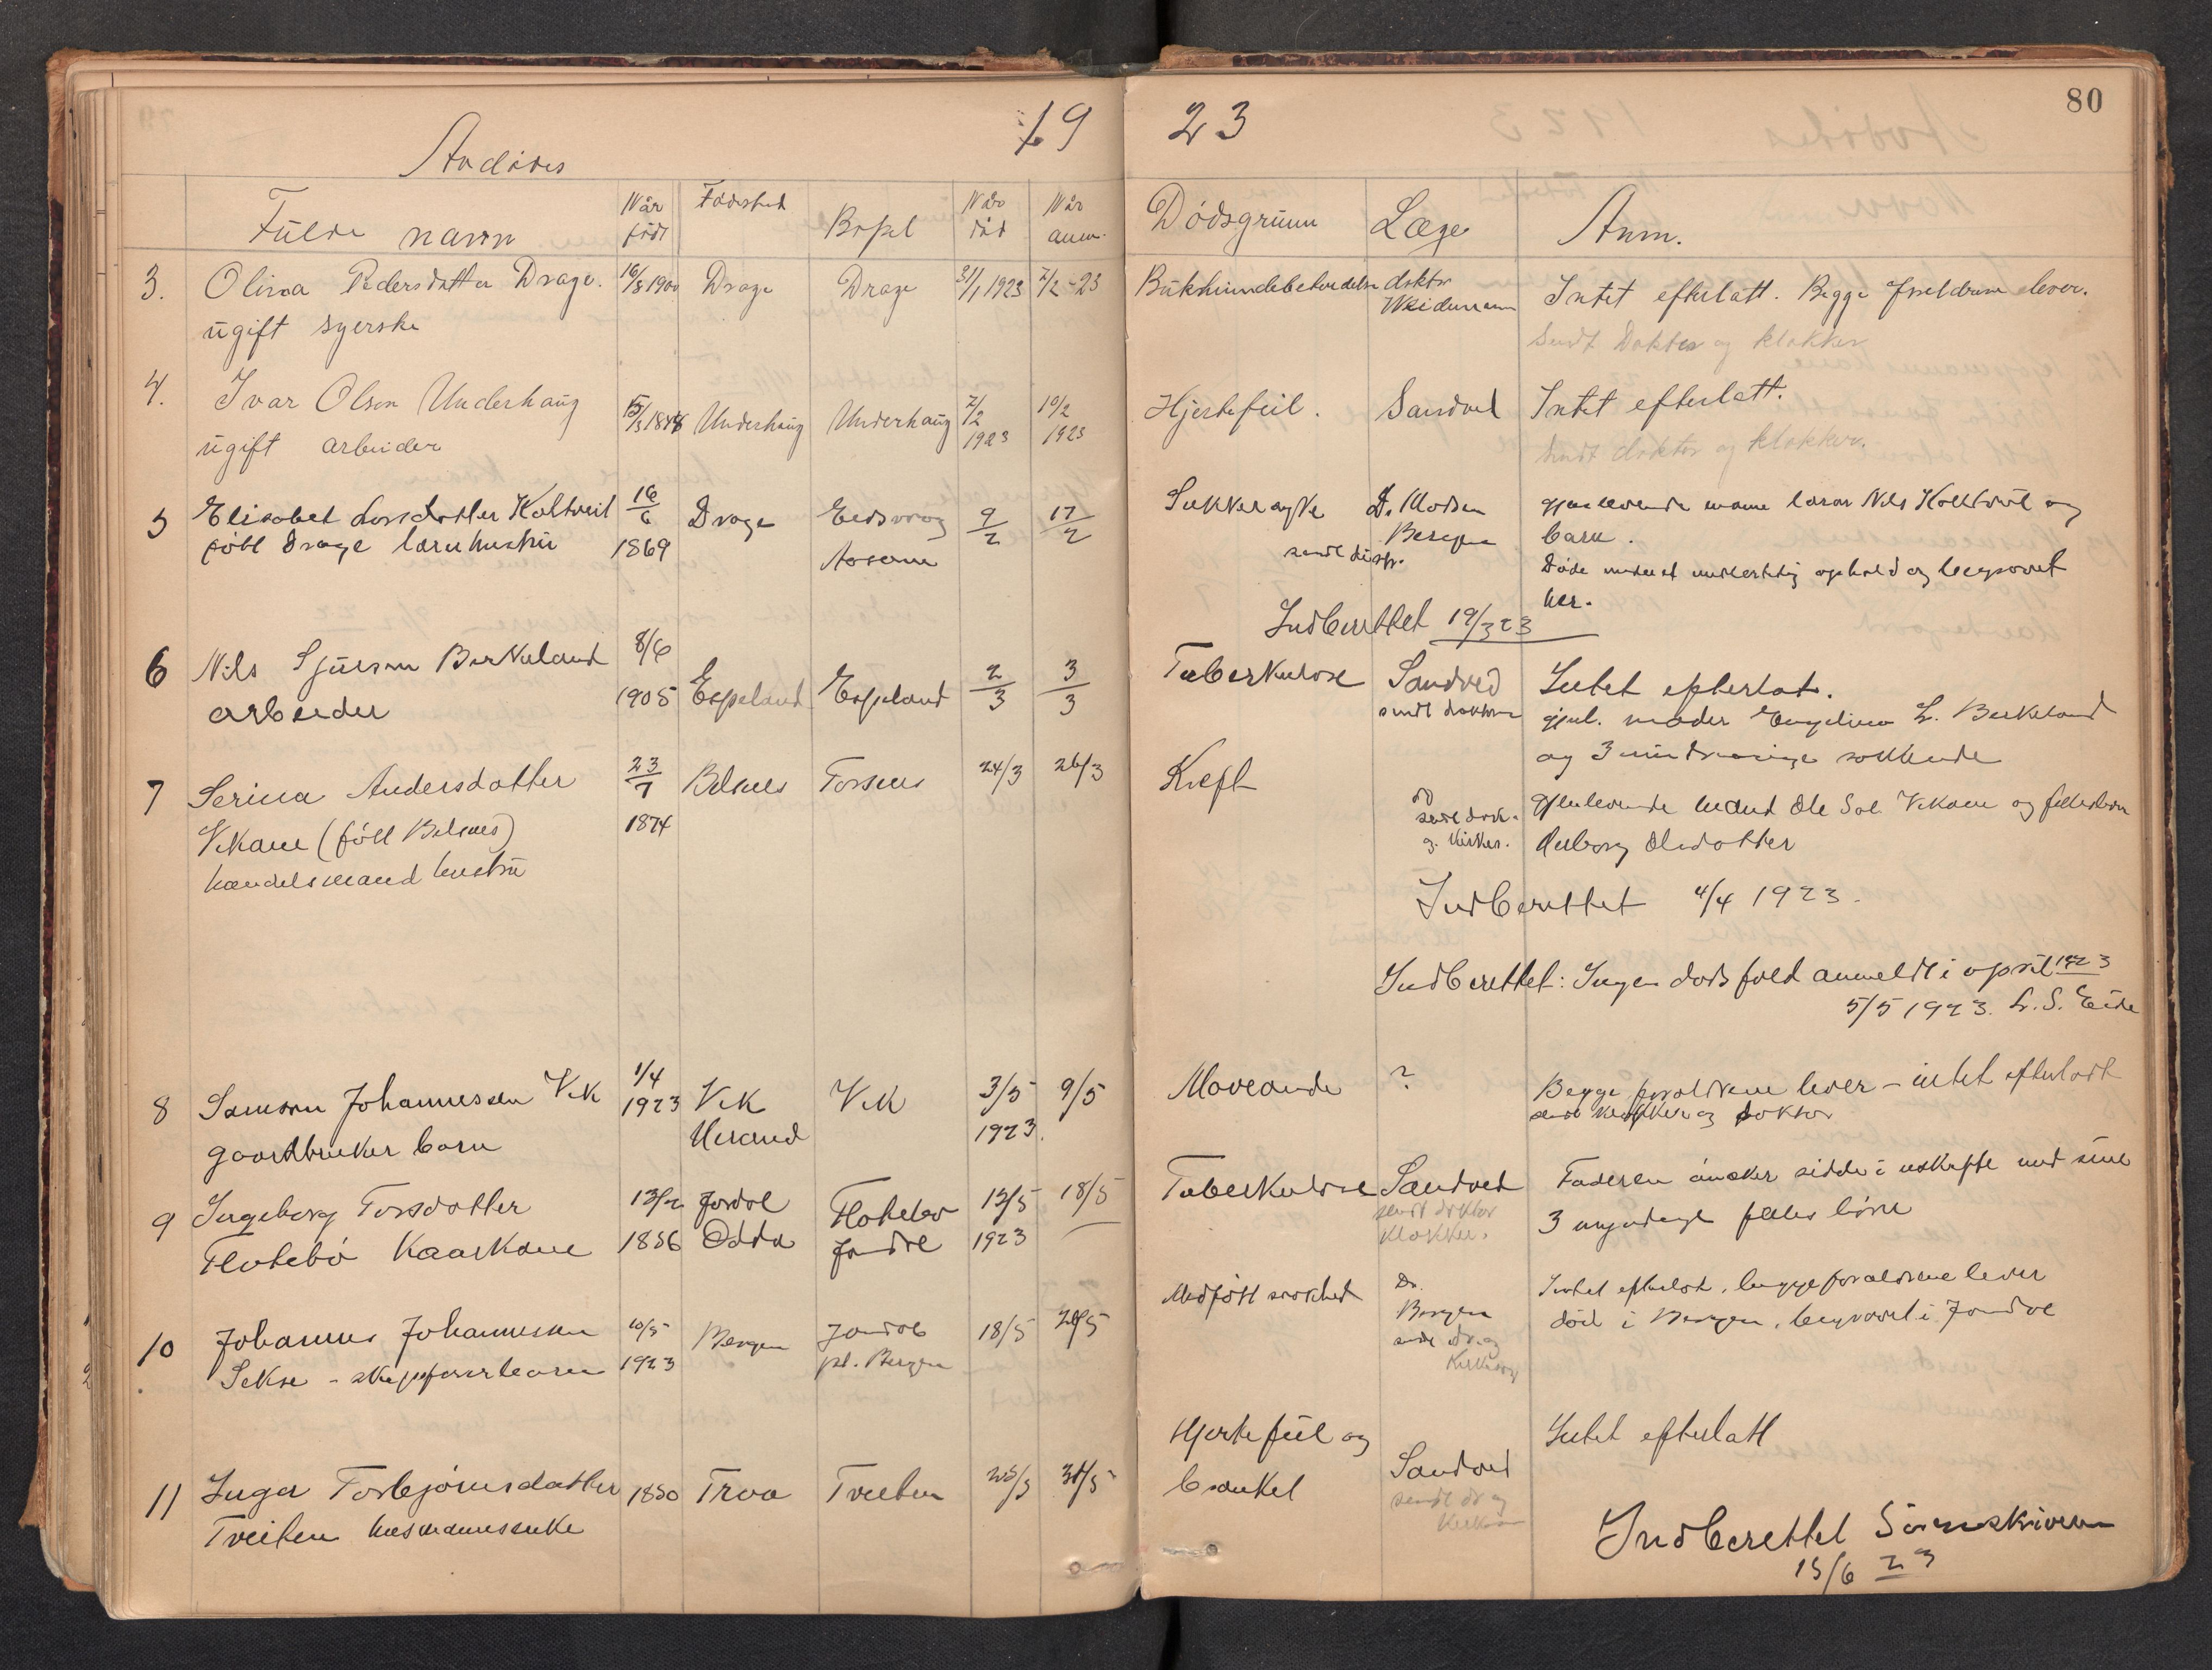 80
19 23
Avdöde
Fulde navn Når født Födested Bopel Når död Når anm. Dödsgrunn Læge Anm.
3. Olina Pedersdatter Drage. 16/8 1900 Drage Drage 31/1 1923 7/2-23 Bukhinnebetendelse doktor Intet efterlatt. Begge foreldrene lever.
ugift syerske Weidemann
Sendt Doktor og klokker
4. Ivar Olsen Underhaug Underhaug Underhaug 7/2 1923 10/2 1923 Hjertefeil. Sandved Intet efterlatt.
ugift arbeider
Sendt doktor og klokker.
5 Elisabet Larsdatter Koltveit 16/6 Drage Eidsvaag 9/2 17/2 Sukkersyke Dr. Madsen gjenlevende mann lærer Nils Koltveit og
født Drage lærerhustru 1869 Aasane Bergen barn.
sendt distr. Døde under et midlertidig ophold og begravet
her.
Indberettet 19/3 23
6 Nils Sjursen Berkeland 8/6
arbeider 1905 Espeland Espeland 2/3 3/3 Tuberkulose Sandved Intet efterlat.
sendt doktor gjenl. moder Engeline L. Berkeland
og 3 mindreaarige søskende
7 Serina Andersdatter 23/7 Belsnes Torsnes 24/3 26/3 Kreft
Vikane (født Belsnes) 1874 sendt dok. gjenlevende mand Ole Sol. Vikane og fellesbarn
handelsmand hustru og kirkev. Anborg Olsdatter
Indberettet 4/4 1923.
Indberettet: Ingen dødsfald anmeldt i april 1923
5/5 1923. L. S. Eide
8 Samson Johannessen Vik 1/4 1923 Vik Vik 3/5 9/5 Maveonde ? Begge foreldrene lever - intet efterlatt
gaardbruker barn Herand 1923. sendt klokker og doktor
9 Ingeborg Torsdatter Jondal Flotebø 12/5 18/5 Tuberkulose Sandved Faderen ønsker sidde i uskifte med sine
Flotebø Kaarkone 1886 Odda Jondal 1923 sendt doktor 3 umyndige felles børn
klokker.
10 Johannes Johannessen 10/5 Bergen Jondal 18/5 Medfött svakhet Dr. Intet efterlat, begge foreldrene lever
Sekse - skipsførerbarn 1923 pt. Bergen Bergen død i Bergen, begravet i Jondal
sendt dr. og
Kirkeverge
11 Inger Torbjørnsdatter 1850 Troa Tveiten 25/5 31/5 Hjertefeil og Sandved Intet efterlatt
Tveiten husmannsenke bronkel sendt dr og
Indberettet Sörenskriveren
15/6 23